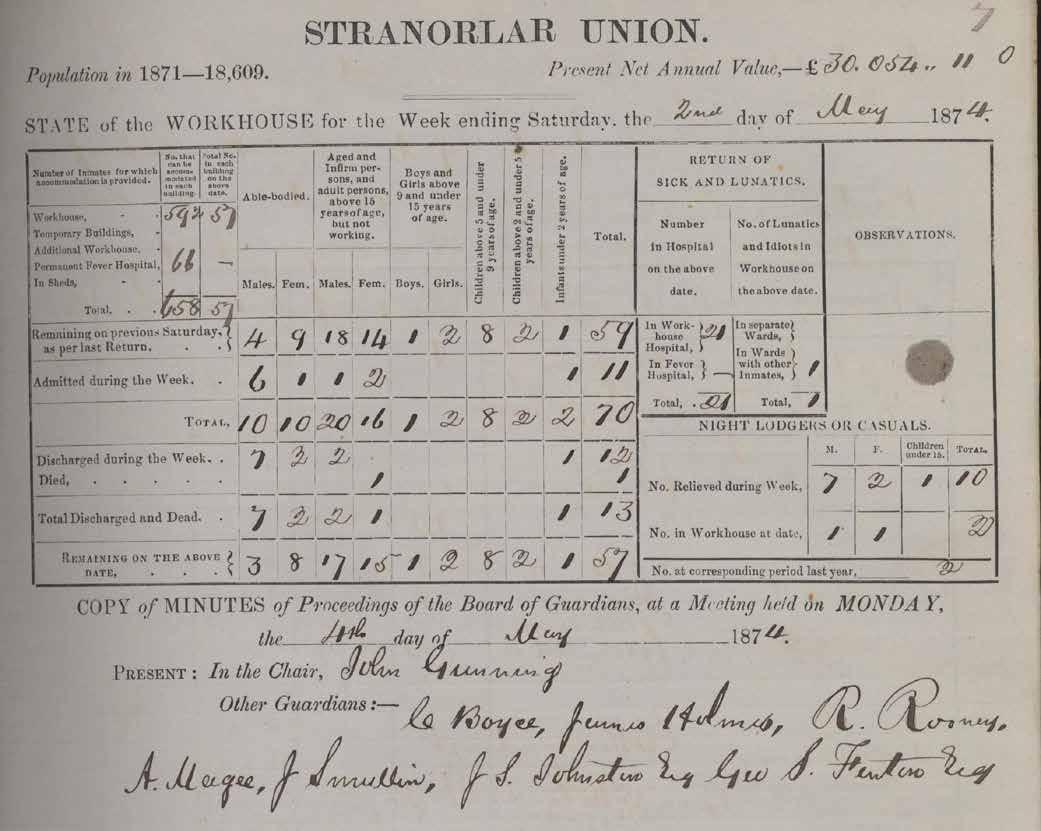 7
STRANORLAR UNION.
Population in 1871—18,609. Present Net Annual Value,—£ 30.054.. 11 0
STATE of the WORKHOUSE for the Week ending Saturday, the 2nd day of May 1874.
Number of Inmates for which accommodation is provided. No. that can be accommodated in each building. Total No. in each building on the above date.
Workhouse, - - 592 57
Temporary Buildings, -
Additional Workhouse. -
Permanent Fever Hospital, 66 —
In Sheds, - -
Total. . . 658 57
Able-bodied. Males. Fem.
Aged and Infirm persons, and adult persons, above 15 years of age, but not working. Males. Fem.
Boys and Girls above 9 and under 15 years of age. Boys. Girls.
Children above 5 and under 9 years of age.
Children above 2 and under 5 years of age.
Infants under 2 years of age.
Total.
Remaining on previous Saturday, as per last Return, . . 4 9 18 14 1 2 8 2 1 59
Admitted during the Week. . 6 1 1 2 1 11
TOTAL, 10 10 20 16 1 2 8 2 2 70
Discharged during the Week. . 7 2 2 1 12
Died, . . . . . 1 1
Total Discharged and Dead. . 7 2 2 1 1 13
REMAINING ON THE ABOVE DATE, . . . 3 8 17 15 1 2 8 2 1 57
RETURN OF SICK AND LUNATICS.
Number in Hospital on the above date.
No. of Lunatics and Idiots in Workhouse on the above date.
In Workhouse Hospital, 21
In Fever Hospital, —
Total, . 21
In separate Wards,
In Wards with other Inmates, 1
Total, 1
OBSERVATIONS.
NIGHT LODGERS OR CASUALS.
M. F. Children under 15. TOTAL.
No. Relieved during Week, 7 2 1 10
No. in Workhouse at date, 1 1 2
No. at corresponding period last year, 2
COPY of MINUTES of Proceedings of the Board of Guardians, at a Meeting held on MONDAY,
the 4th day of May 1874.
PRESENT: In the Chair, John Gunning
Other Guardians:—
C Boyce, James Holmes, R. Rooney,
A. Magee, J Smullin, J S. Johnston Esq Geo S. Fenton Esq